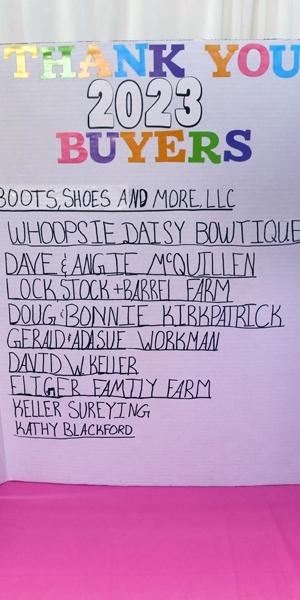 THANK YOU
2023
BUYERS
BOOTS, SHOES AND MORE, LLC
WHOOPSIE DAISY BOWTIQUE
DAVE & ANGIE McQUILLEN
LOCK, STOCK + BARREL FARM
DOUG & BONNIE KIRKPATRICK
GERALD & ADASUE WORKMAN
DAVID W. KELLER
ELIGER FAMILY FARM
KELLER SUREYING
KATHY BLACKFORD